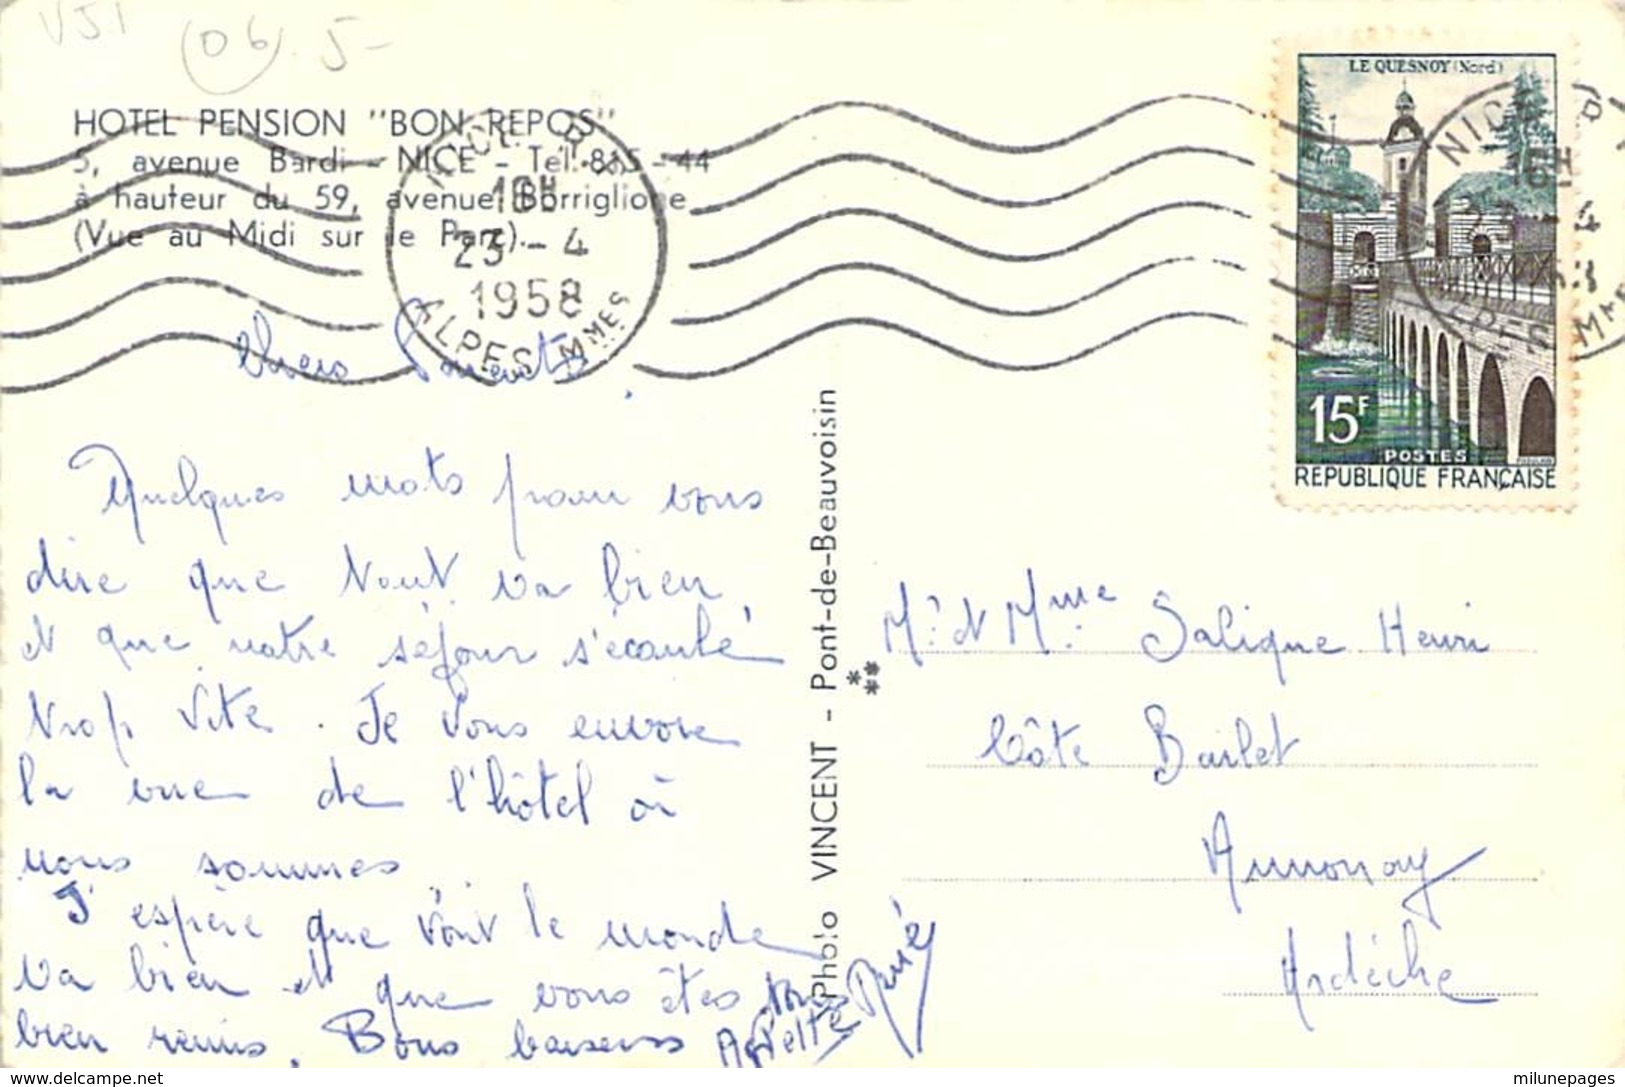 V51
06 . 5-
HOTEL PENSION "BON REPOS"
5, avenue Bardi - NICE - Tél. 815-44
à hauteur du 59, avenue Borriglione
(Vue au Midi sur le Parc).
NICE R.P
18H
23 - 4
1958
ALPES MMES
NICE R.P
18H
23 - 4
1958
ALPES MMES
LE QUESNOY (Nord)
15F
POSTES
REPUBLIQUE FRANÇAISE
Chers Parents
Quelques mots pour vous
dire que tout va bien
et que notre séjour s'écoule
trop vite. Je vous envoie
la vue de l'hôtel où
nous sommes
J'espère que tout le monde
va bien et que vous êtes tous
bien remis. Bons baisers
René
Photo VINCENT - Pont-de-Beauvoisin
Mr et Mme Salique Henri
Côte Bailet
Annonay
Ardèche
delcampe.net
milunepages